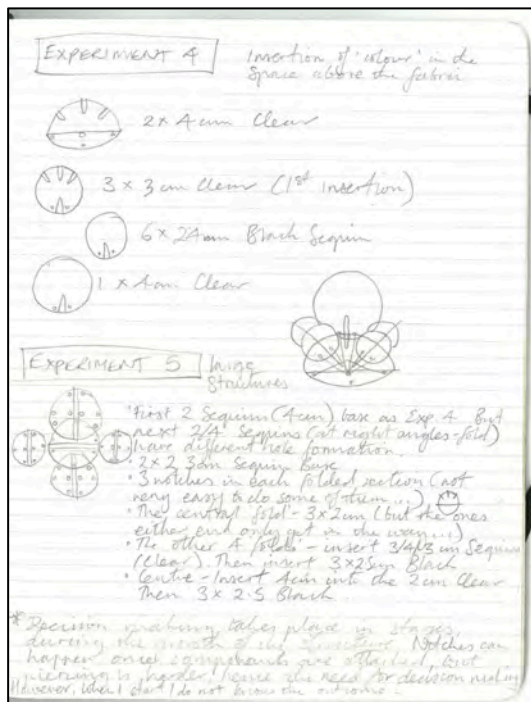 EXPERIMENT 4
Insertion of 'colour' in the
Space above the fabric
2 x 4cm Clear
3 x 3cm Clear (1st insertion)
6 x 24mm Black Sequin
1 x 4cm Clear
EXPERIMENT 5
Structures
• First 2 Sequins (4cm) base as Exp. 4 But
next 2/4 Sequins (at right angles - fold)
have different hole formation.
• 2 x 2 3cm Sequin Base
• 3 notches in each folded section (not
very easy to do some of them...)
• The central fold - 3 x 2cm (but the ones
either end only get in the way...)
• The other 4 folds - insert 3/4/3cm Sequin
(clear). Then insert 3 x 25mm Black
• Centre - Insert 4cm into the 2cm Clear
Then 3 x 2.5 Black.
* Decision making takes place in stages
during the growth of the structure. Notches can
happen once components are attached, but
piercing is harder, hence the need for decision making
However, when I start I do not know the outcome.